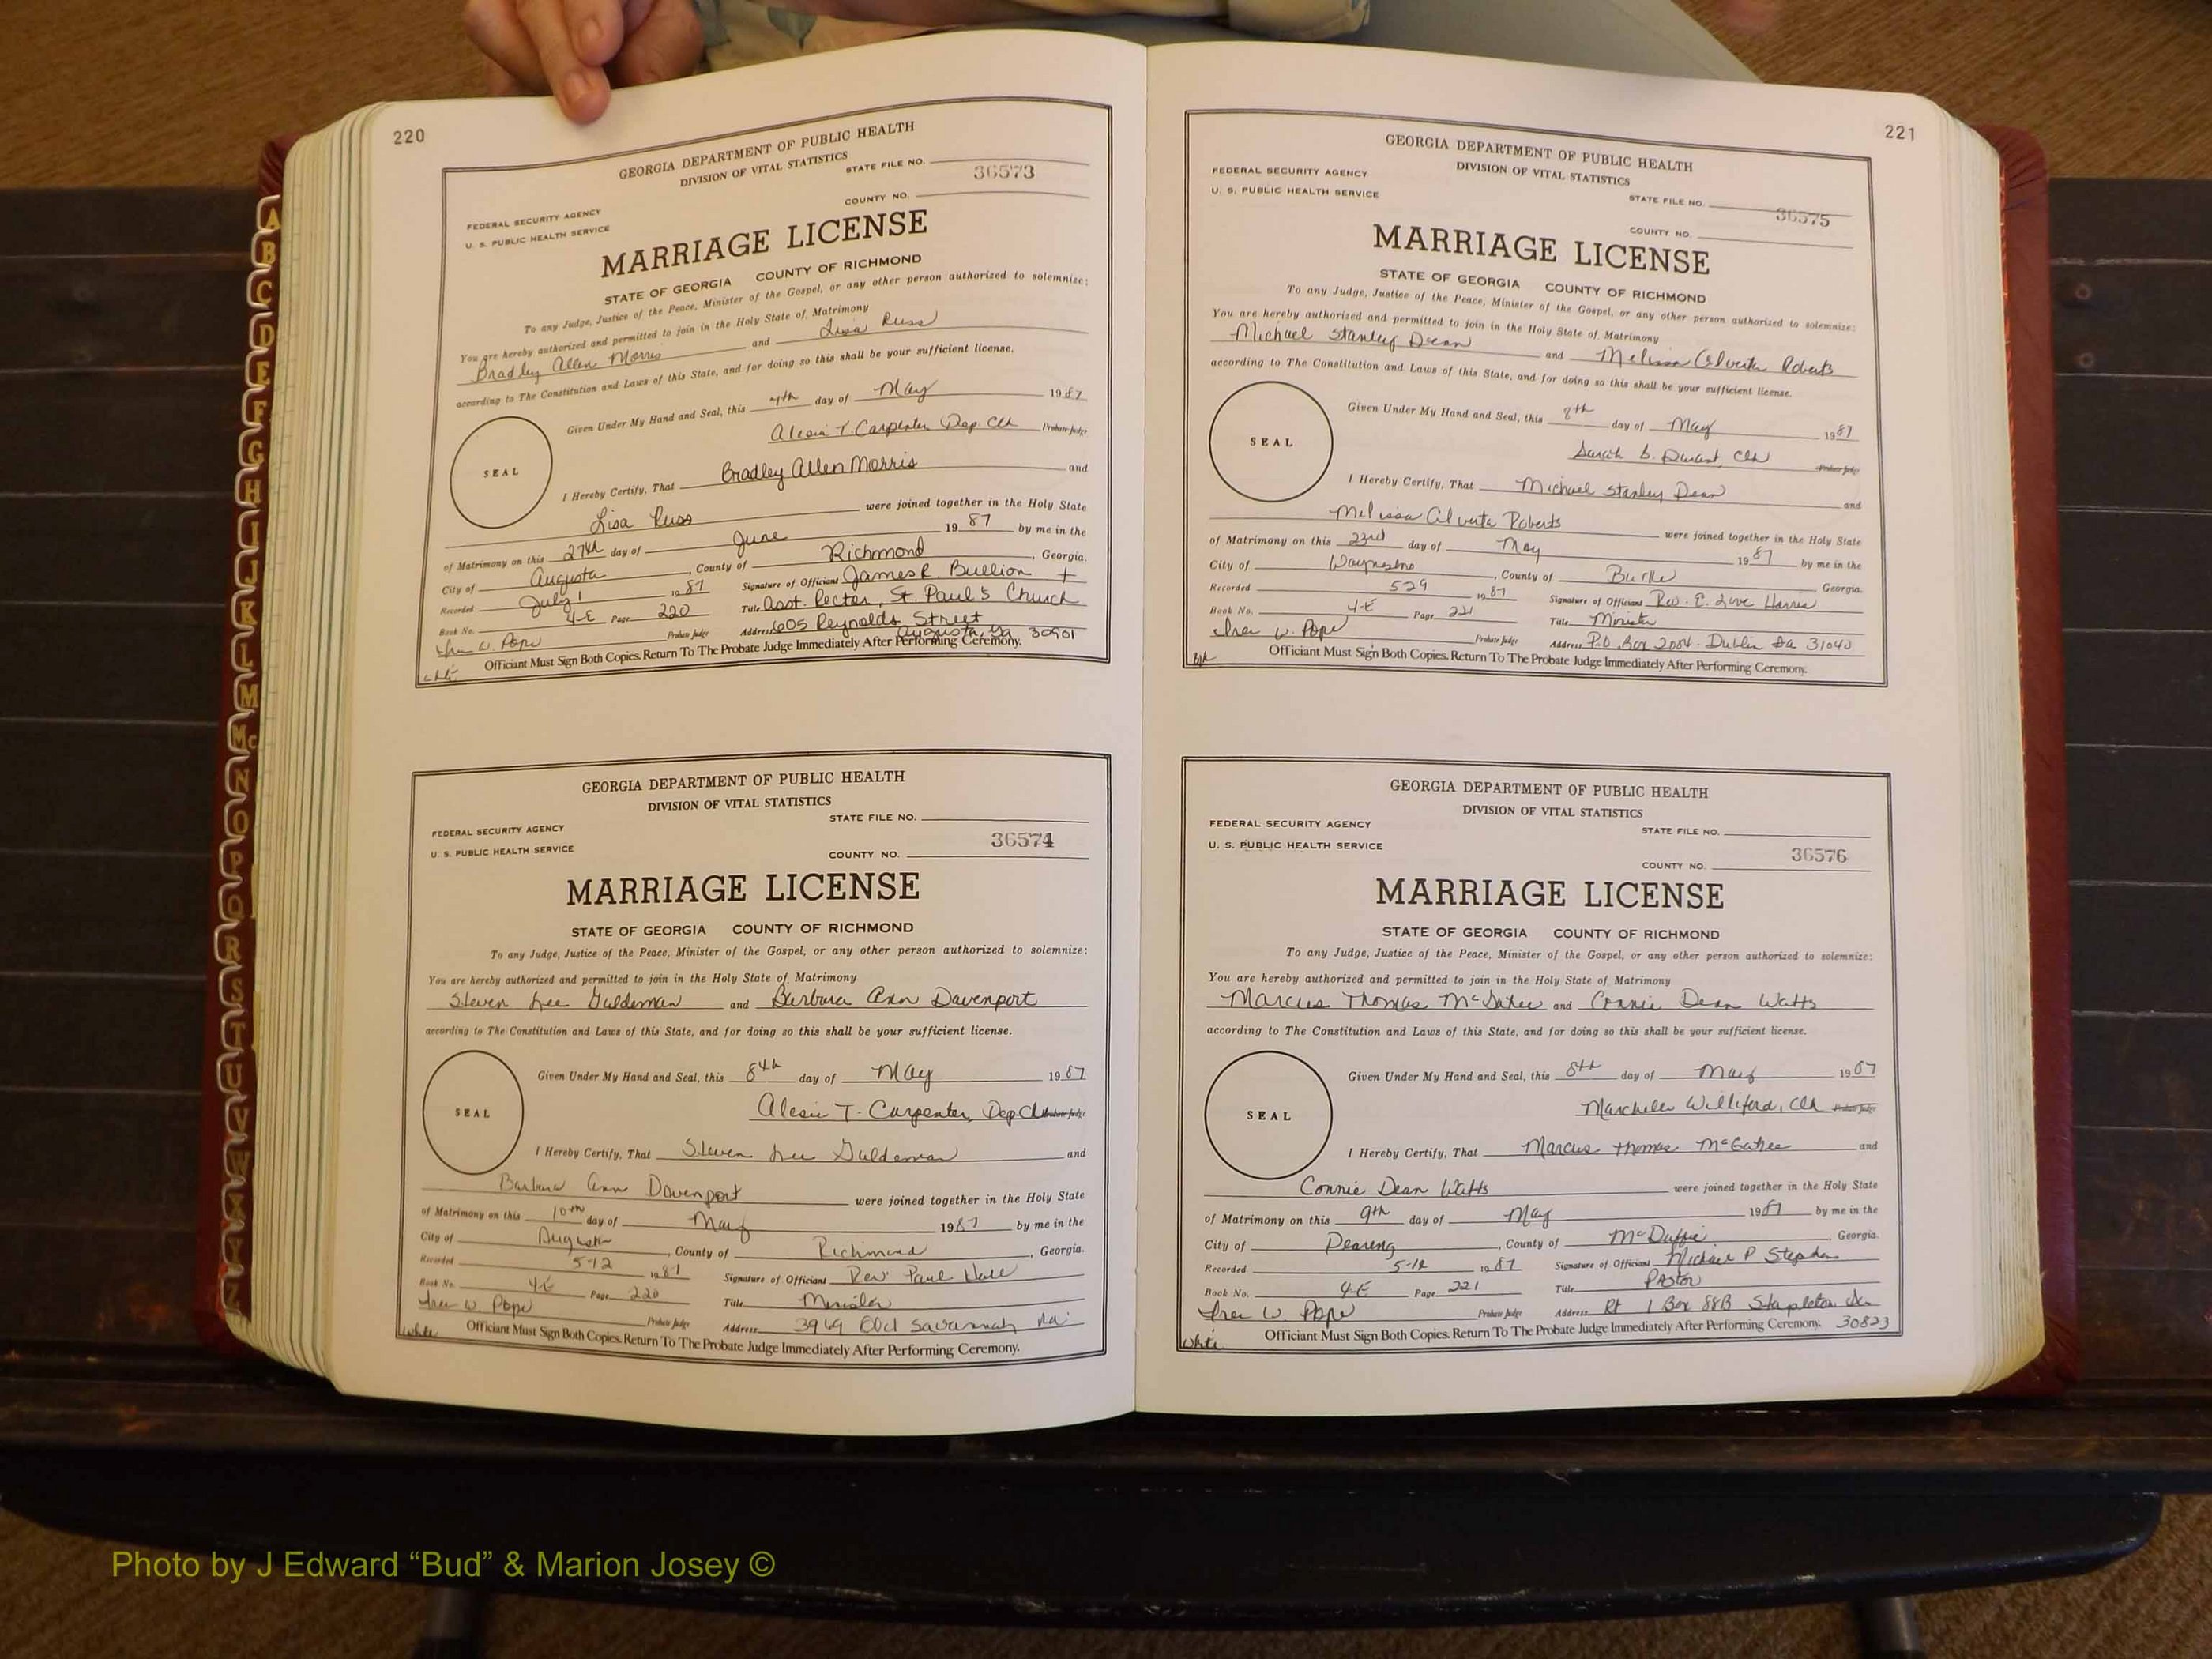 220
GEORGIA DEPARTMENT OF PUBLIC HEALTH
DIVISION OF VITAL STATISTICS
STATE FILE NO.
36573
COUNTY NO.
FEDERAL SECURITY AGENCY
U. S. PUBLIC HEALTH SERVICE
MARRIAGE LICENSE
STATE OF GEORGIA COUNTY OF RICHMOND
To any Judge, Justice of the Peace, Minister of the Gospel, or any other person authorized to solemnize:
You are hereby authorized and permitted to join in the Holy State of Matrimony
Bradley Allen Morris and Lisa Russ
according to The Constitution and Laws of this State, and for doing so this shall be your sufficient license.
Given Under My Hand and Seal, this day of May 1987
Alesia T. Carpenter Dep. Clk Probate Judge
SEAL
I Hereby Certify, That Bradley Allen Morris and
Lisa Russ were joined together in the Holy State
of Matrimony on this 27th day of June 1987 by me in the
City of Augusta, County of Richmond, Georgia.
Recorded July 1 1987 Signature of Officiant James R. Bullion +
Book No. 4-E Page 220 Title Asst. Rector, St. Paul's Church
W. Pope Probate Judge Address 605 Reynolds Street
Augusta, Ga. 30901
Officiant Must Sign Both Copies. Return To The Probate Judge Immediately After Performing Ceremony.
GEORGIA DEPARTMENT OF PUBLIC HEALTH
DIVISION OF VITAL STATISTICS
STATE FILE NO.
FEDERAL SECURITY AGENCY
36574
U. S. PUBLIC HEALTH SERVICE
COUNTY NO.
MARRIAGE LICENSE
STATE OF GEORGIA COUNTY OF RICHMOND
To any Judge, Justice of the Peace, Minister of the Gospel, or any other person authorized to solemnize:
You are hereby authorized and permitted to join in the Holy State of Matrimony
Steven Lee Guldeman and Barbara Ann Davenport
according to The Constitution and Laws of this State, and for doing so this shall be your sufficient license.
Given Under My Hand and Seal, this 8th day of May 1987
Alesia T. Carpenter, Dep Clk Probate Judge
SEAL
I Hereby Certify, That Steven Lee Guldeman and
Barbara Ann Davenport were joined together in the Holy State
of Matrimony on this 10th day of May 1987 by me in the
City of Augusta, County of Richmond, Georgia.
Recorded 5-12 1987 Signature of Officiant Rev. Paul Hall
Book No. 4-E Page 220 Title Minister
W. Pope Probate Judge Address 3969 Old Savannah Rd.
White
Officiant Must Sign Both Copies. Return To The Probate Judge Immediately After Performing Ceremony.
221
GEORGIA DEPARTMENT OF PUBLIC HEALTH
DIVISION OF VITAL STATISTICS
FEDERAL SECURITY AGENCY
U. S. PUBLIC HEALTH SERVICE
STATE FILE NO.
36575
COUNTY NO.
MARRIAGE LICENSE
STATE OF GEORGIA COUNTY OF RICHMOND
To any Judge, Justice of the Peace, Minister of the Gospel, or any other person authorized to solemnize:
You are hereby authorized and permitted to join in the Holy State of Matrimony
Michael Stanley Dean and Melissa Alverta Roberts
according to The Constitution and Laws of this State, and for doing so this shall be your sufficient license.
Given Under My Hand and Seal, this 8th day of May 1987
Sarah B. Durant, Clk Probate Judge
SEAL
I Hereby Certify, That Michael Stanley Dean and
Melissa Alverta Roberts were joined together in the Holy State
of Matrimony on this 23rd day of May 1987 by me in the
City of Waynesboro, County of Burke Georgia.
Recorded 529 1987 Signature of Officiant Rev. E. Love Harris
Book No. 4-E Page 221 Title Minister
W. Pope Probate Judge Address P.O. Box 2004 - Dublin Ga 31040
Blk
Officiant Must Sign Both Copies. Return To The Probate Judge Immediately After Performing Ceremony.
GEORGIA DEPARTMENT OF PUBLIC HEALTH
DIVISION OF VITAL STATISTICS
FEDERAL SECURITY AGENCY
STATE FILE NO.
U. S. PUBLIC HEALTH SERVICE
36576
COUNTY NO.
MARRIAGE LICENSE
STATE OF GEORGIA COUNTY OF RICHMOND
To any Judge, Justice of the Peace, Minister of the Gospel, or any other person authorized to solemnize:
You are hereby authorized and permitted to join in the Holy State of Matrimony
Marcus Thomas McGahee and Connie Dean Watts
according to The Constitution and Laws of this State, and for doing so this shall be your sufficient license.
Given Under My Hand and Seal, this 8th day of May 1987
Marchelle Williford, Clk Probate Judge
SEAL
I Hereby Certify, That Marcus Thomas McGahee and
Connie Dean Watts were joined together in the Holy State
of Matrimony on this 9th day of May 1987 by me in the
City of Dearing, County of McDuffie Georgia.
Recorded 5-12 1987 Signature of Officiant Michael P Stephens
Book No. 4-E Page 221 Title Pastor
W. Pope Probate Judge Address Rt 1 Box 88B Stapleton Ga
30823
White
Officiant Must Sign Both Copies. Return To The Probate Judge Immediately After Performing Ceremony.
A
B
C
D
E
F
G
H
I
J
K
L
M
Mc
N
O
P
Q
R
S
T
U
V
W
X
Y
Z
Photo by J Edward “Bud” & Marion Josey ©